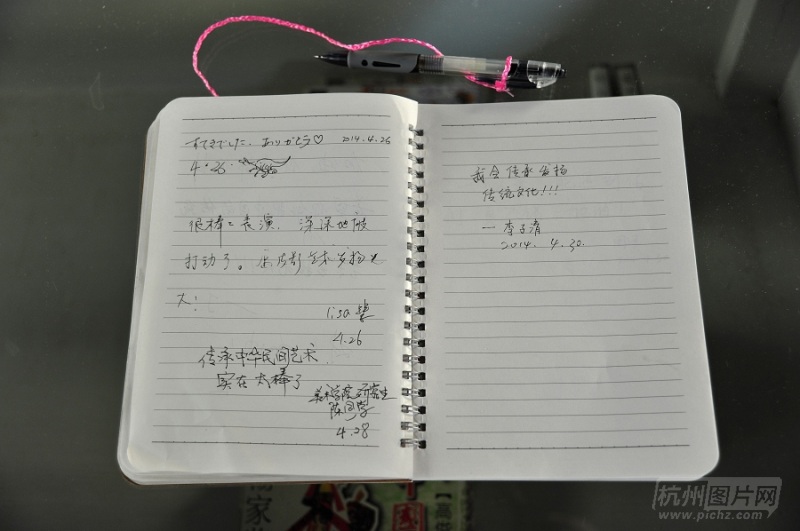 すてきでした。ありがとう♡ 2014.4.26
4.26.
很棒的表演，深深地被
打动了。皮影艺术发扬光
大！
lisa
4.26
传承中华民间艺术
实在太棒了
美术学院研究生
陈同学
4.28
我会传承发扬
传统文化!!!
一李子清
2014. 4.30.
杭州图片网
www.pichz.com